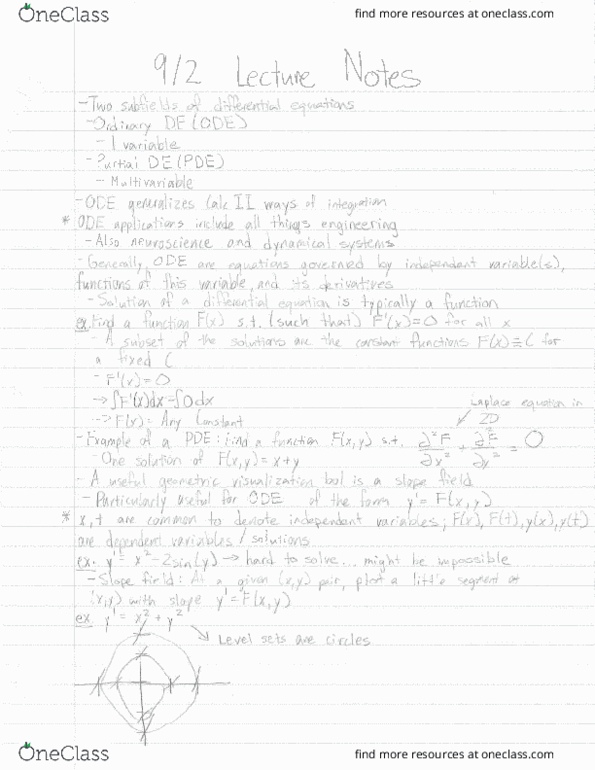 OneClass
find more resources at oneclass.com
9/2 Lecture Notes
- Two subfields of differential equations
- Ordinary DE (ODE)
- 1 variable
- Partial DE (PDE)
- Multivariable
- ODE generalizes Calc II ways of integration
* ODE applications include all things engineering
- Also neuroscience and dynamical systems
- Generally, ODE are equations governed by independent variable(s),
functions of this variable, and its derivatives
- Solution of a differential equation is typically a function
ex. Find a function F(x) s.t. (such that) F'(x)=0 for all x
- A subset of the solutions are the constant functions F(x)≡C for
a fixed C
- F'(x)=0
→ ∫F'(x)dx=∫0dx
--> F(x)= Any Constant
Laplace equation in
2D
- Example of a PDE: Find a function F(x,y) s.t. ∂²F/∂x² + ∂²F/∂y² = 0
- One solution of F(x,y)=x+y
- A useful geometric visualization tool is a slope field
- Particularly useful for ODE of the form y'= F(x,y)
* x,t are common to denote independent variables; F(x), F(t), y(x), y(t)
are dependent variables/solutions
ex. y'= x²-2sin(y) → hard to solve... might be impossible
- Slope field: At a given (x,y) pair, plot a little segment at
(x,y) with slope y'=F(x,y)
ex. y'= x²+y²
↘ Level sets are circles
OneClass
find more resources at oneclass.com